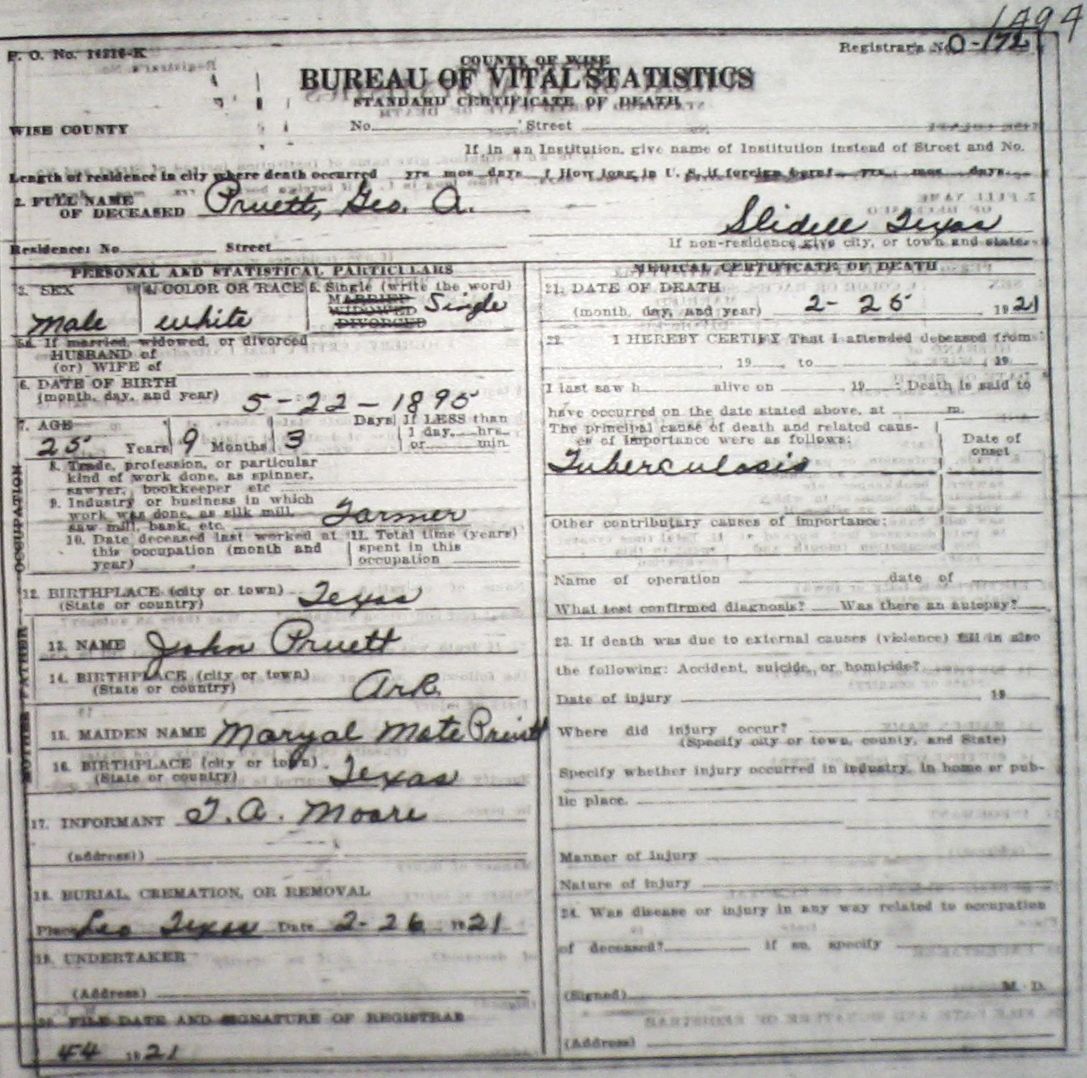 1494
P. O. No. 14216-K
Registrar's No. 0-172
COUNTY OF WISE
BUREAU OF VITAL STATISTICS
STANDARD CERTIFICATE OF DEATH
WISE COUNTY No. Street
If in an Institution, give name of Institution instead of Street and No.
Length of residence in city where death occurred yrs mos days ? How long in U. S. if foreign born? yrs. mos days.
2. FULL NAME OF DECEASED Pruett, Geo. A.
Slidell Texas
Residence: No Street If non-residence give city, or town and state.
PERSONAL AND STATISTICAL PARTICULARS
3. SEX Male
4. COLOR OR RACE white
5. Single (write the word) MARRIED WIDOWED DIVORCED Single
5a. If married, widowed, or divorced
HUSBAND of
(or) WIFE of
6. DATE OF BIRTH
(month, day, and year) 5-22-1895
7. AGE
25 Years 9 Months 3 Days If LESS than 1 day, hrs. or min.
8. Trade, profession, or particular
kind of work done, as spinner,
sawyer, bookkeeper etc
9. Industry or business in which
work was done, as silk mill,
saw mill, bank, etc. Farmer
10. Date deceased last worked at this occupation (month and year)
11. Total time (years) spent in this occupation
OCCUPATION
12. BIRTHPLACE (city or town)
(State or country) Texas
FATHER
13. NAME John Pruett
14. BIRTHPLACE (city or town)
(State or country) Ark
MOTHER
15. MAIDEN NAME Maryal Mote Pruitt
16. BIRTHPLACE (city or town)
(State or country) Texas
17. INFORMANT T.A. Moore
(address))
18. BURIAL, CREMATION, OR REMOVAL
Place Leo Texas Date 2-26 1921
19. UNDERTAKER
(Address)
20. FILE DATE AND SIGNATURE OF REGISTRAR
44 1921
MEDICAL CERTIFICATE OF DEATH
21. DATE OF DEATH
(month, day, and year) 2-25 1921
22. I HEREBY CERTIFY That I attended deceased from
, 19 , to , 19
I last saw h alive on 19 . Death is said to
have occurred on the date stated above, at m.
The principal cause of death and related causes of importance were as follows: Date of onset
Tuberculosis
Other contributary causes of importance:
Name of operation date of
What test confirmed diagnosis? Was there an autopsy?
23. If death was due to external causes (violence) fill in also
the following: Accident, suicide, or homicide?
Date of injury 19
Where did injury occur?
(Specify city or town, county, and State)
Specify whether injury occurred in industry, in home or pub-
lic place.
Manner of injury
Nature of injury
24. Was disease or injury in any way related to occupation
of deceased? if so, specify
(Signed) M. D.
(Address)